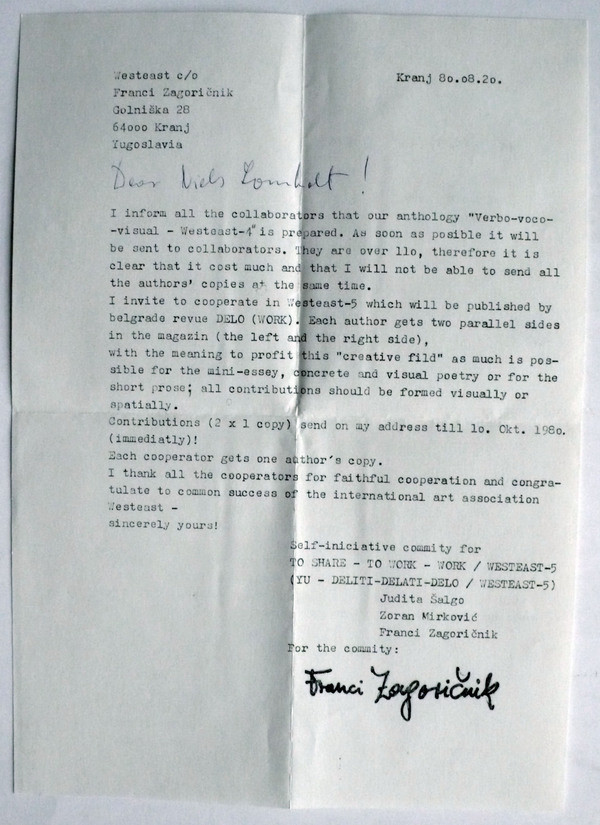 Westeast c/o
Franci Zagoričnik
Golniška 28
64ooo Kranj
Yugoslavia
Kranj 8o.o8.2o.
Dear Niels Lomholt !
I inform all the collaborators that our anthology "Verbo-voco-
-visual - Westeast-4" is prepared. As soon as posible it will
be sent to collaborators. They are over llo, therefore it is
clear that it cost much and that I will not be able to send all
the authors' copies at the same time.
I invite to cooperate in Westeast-5 which will be published by
belgrade revue DELO (WORK). Each author gets two parallel sides
in the magazin (the left and the right side),
with the meaning to profit this "creative fild" as much is pos-
sible for the mini-essey, concrete and visual poetry or for the
short prose; all contributions should be formed visually or
spatially.
Contributions (2 x 1 copy) send on my address till lo. Okt. 198o.
(immediatly)!
Each cooperator gets one author's copy.
I thank all the cooperators for faithful cooperation and congra-
tulate to common success of the international art association
Westeast -
sincerely yours!
Self-iniciative commity for
TO SHARE - TO WORK - WORK / WESTEAST-5
(YU - DELITI-DELATI-DELO / WESTEAST-5)
Judita Šalgo
Zoran Mirković
Franci Zagoričnik
For the commity:
Franci Zagoričnik